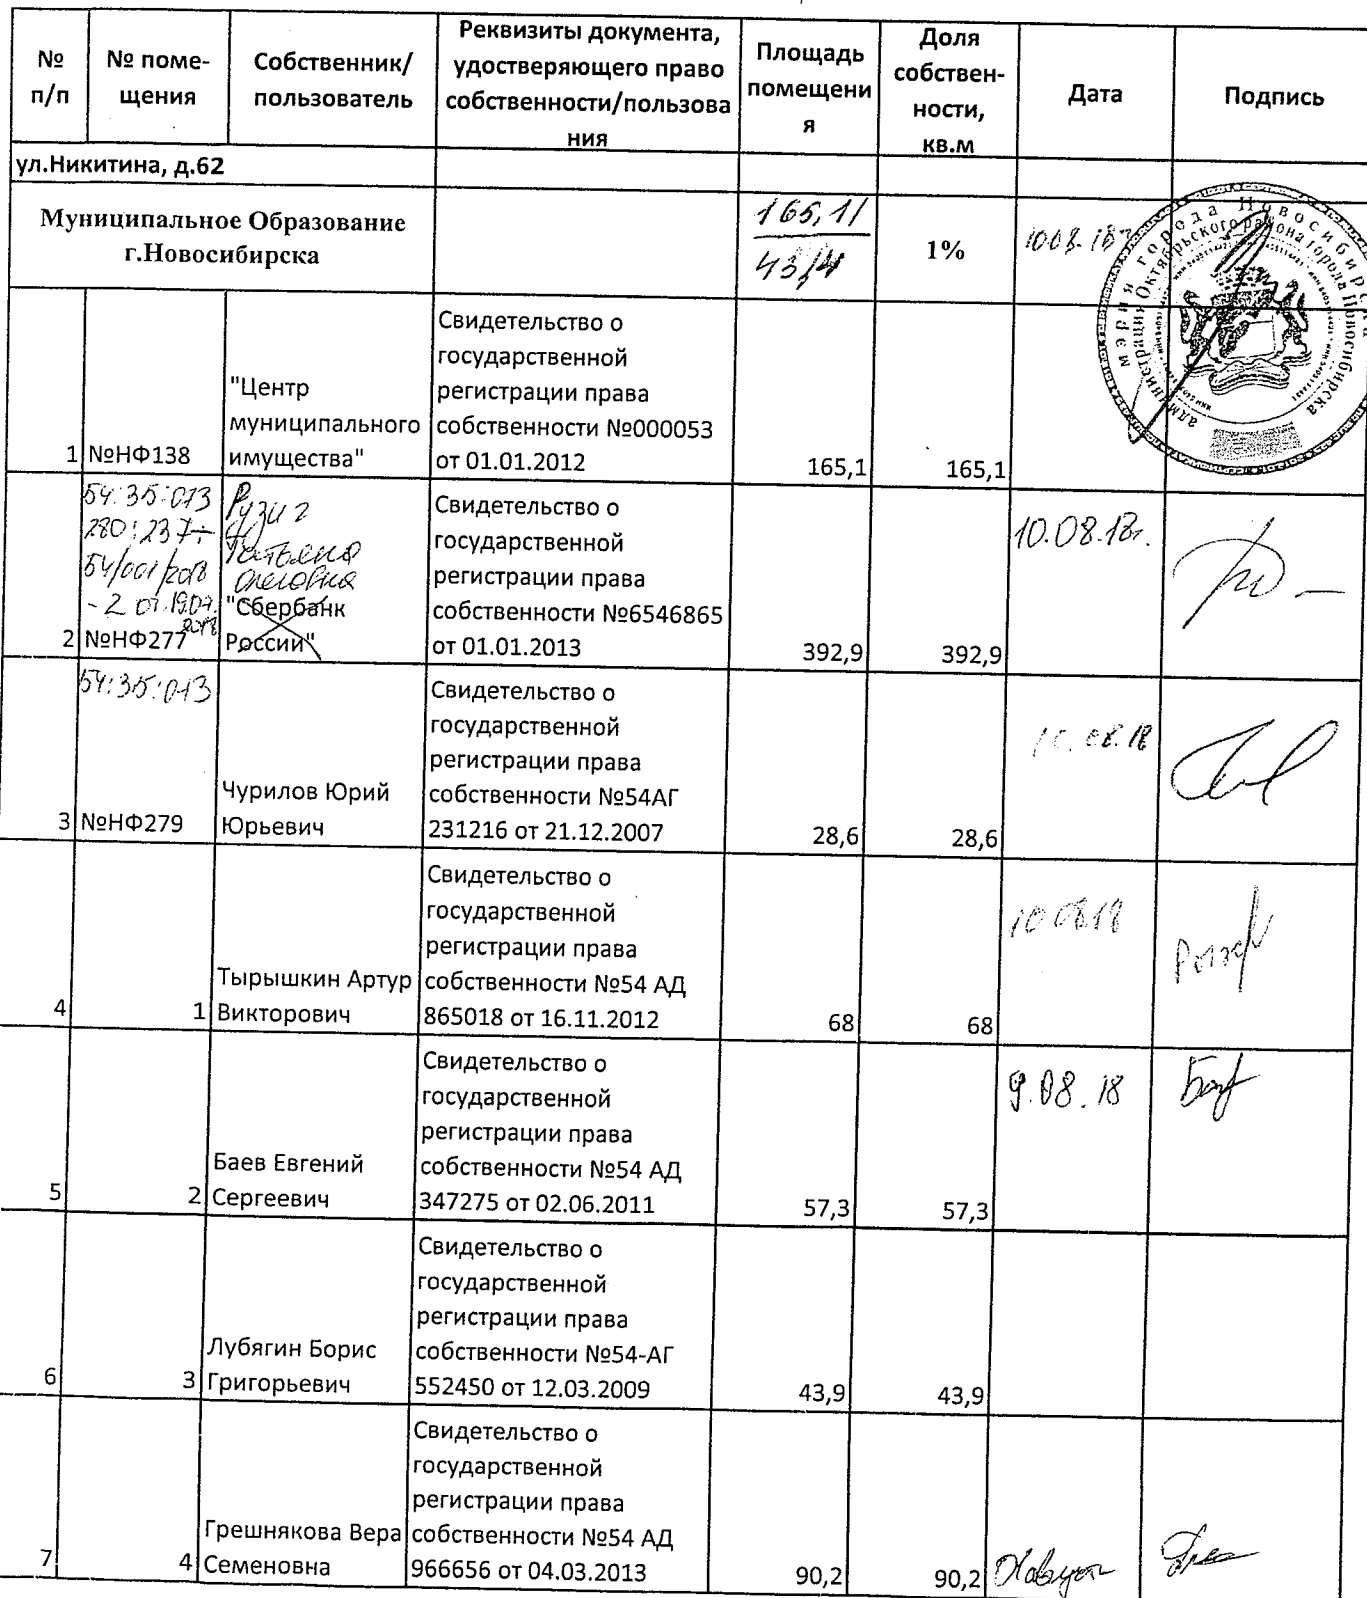 № п/п
№ поме-
щения
Собственник/
пользователь
Реквизиты документа,
удостверяющего право
собственности/пользова
ния
Площадь
помещени
я
Доля
собствен-
ности,
кв.м
Дата
Подпись
ул.Никитина, д.62
Муниципальное Образование
г.Новосибирска
165,1/
43,4
1%
10.08.18г
мэрия города Новосибирска
администрация Октябрьского района города Новосибирска
1
№НФ138
"Центр
муниципального
имущества"
Свидетельство о
государственной
регистрации права
собственности №000053
от 01.01.2012
165,1
165,1
54:35:013
280:237-
54/001/2018
-2 от 19.07.
2018
2
№НФ277
Татьяна
"Сбербанк
России"
Свидетельство о
государственной
регистрации права
собственности №6546865
от 01.01.2013
392,9
392,9
10.08.18г.
54:35:013
3
№НФ279
Чурилов Юрий
Юрьевич
Свидетельство о
государственной
регистрации права
собственности №54АГ
231216 от 21.12.2007
28,6
28,6
10.08.18
4
1
Тырышкин Артур
Викторович
Свидетельство о
государственной
регистрации права
собственности №54 АД
865018 от 16.11.2012
68
68
10 08 18
5
2
Баев Евгений
Сергеевич
Свидетельство о
государственной
регистрации права
собственности №54 АД
347275 от 02.06.2011
57,3
57,3
9.08.18
6
3
Лубягин Борис
Григорьевич
Свидетельство о
государственной
регистрации права
собственности №54-АГ
552450 от 12.03.2009
43,9
43,9
7
4
Грешнякова Вера
Семеновна
Свидетельство о
государственной
регистрации права
собственности №54 АД
966656 от 04.03.2013
90,2
90,2